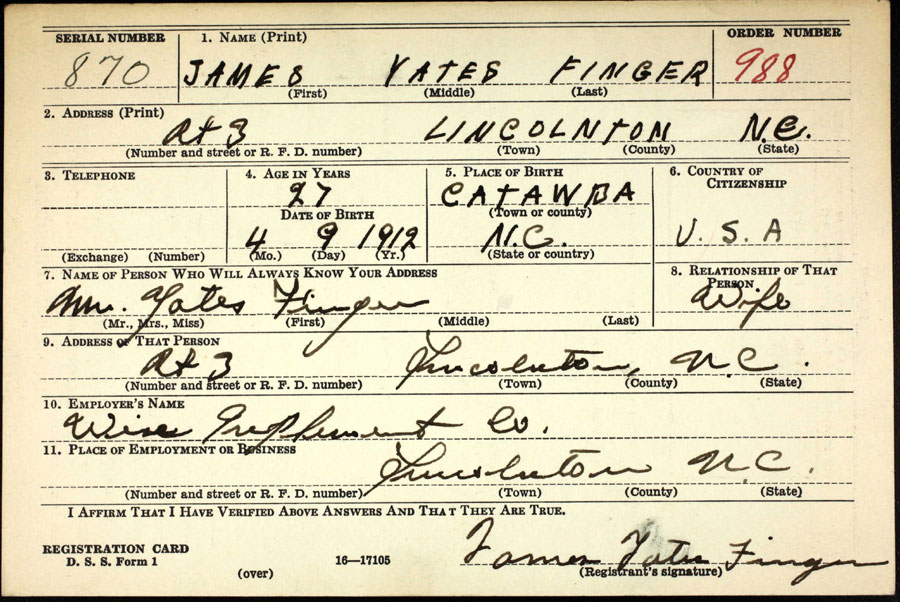 SERIAL NUMBER 1. NAME (Print) ORDER NUMBER
870 JAMES YATES FINGER 988
(First) (Middle) (Last)
2. ADDRESS (Print)
Rt 3 LINCOLNTON N.C.
(Number and street or R. F. D. number) (Town) (County) (State)
3. TELEPHONE 4. AGE IN YEARS 5. PLACE OF BIRTH 6. COUNTRY OF CITIZENSHIP
27 CATAWBA
DATE OF BIRTH (Town or county)
4 9 1912 N.C. U. S. A
(Exchange) (Number) (Mo.) (Day) (Yr.) (State or country)
7. NAME OF PERSON WHO WILL ALWAYS KNOW YOUR ADDRESS 8. RELATIONSHIP OF THAT PERSON
Mrs. Yates Finger Wife
(Mr., Mrs., Miss) (First) (Middle) (Last)
9. ADDRESS OF THAT PERSON
Rt 3 Lincolnton, N.C.
(Number and street or R. F. D. number) (Town) (County) (State)
10. EMPLOYER'S NAME
Wise Implement Co.
11. PLACE OF EMPLOYMENT OR BUSINESS
Lincolnton N.C.
(Number and street or R. F. D. number) (Town) (County) (State)
I AFFIRM THAT I HAVE VERIFIED ABOVE ANSWERS AND THAT THEY ARE TRUE.
REGISTRATION CARD
D. S. S. Form 1 16—17105 James Yates Finger
(over) (Registrant's signature)